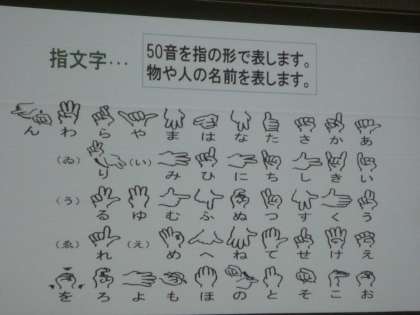 指文字…
50音を指の形で表します。
物や人の名前を表します。
ん わ ら や ま は な た さ か あ
（ゐ） り （い） み ひ に ち し き い
（う） る ゆ む ふ ぬ つ す く う
（ゑ） れ （え） め へ ね て せ け え
を ろ よ も ほ の と そ こ お